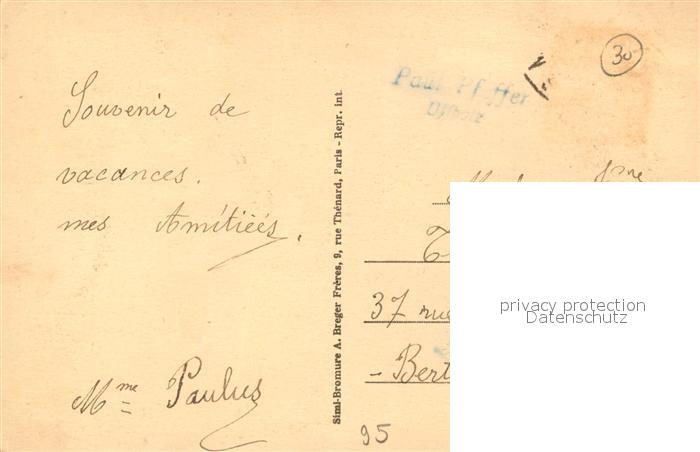 Souvenir de
vacances.
mes Amitiéés.
Mme Paulus
Simi-Bromure A. Breger Frères, 9, rue Thénard, Paris - Repr. int.
Paul Pf ffer
30
37 rue
- Bert
95
privacy protection
Datenschutz